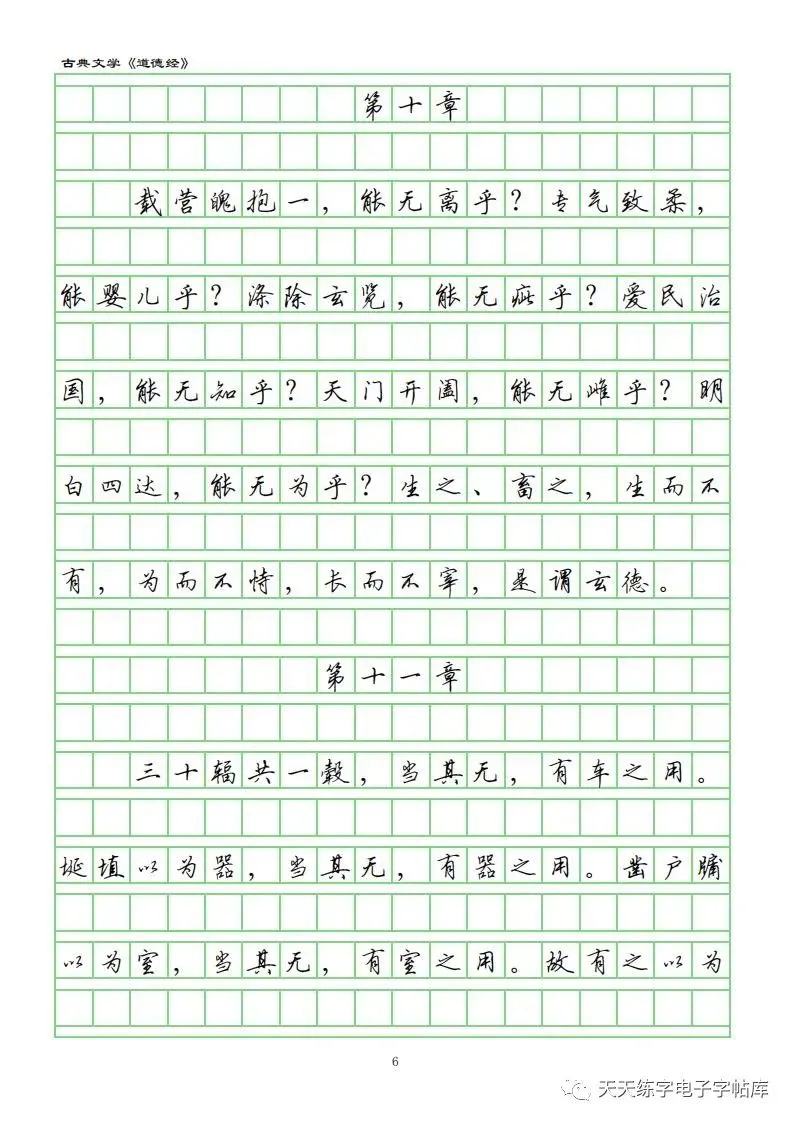 古典文学《道德经》
第十章
载营魄抱一，能无离乎？专气致柔，
能婴儿乎？涤除玄览，能无疵乎？爱民治
国，能无知乎？天门开阖，能无雌乎？明
白四达，能无为乎？生之、畜之，生而不
有，为而不恃，长而不宰，是谓玄德。
第十一章
三十辐共一毂，当其无，有车之用。
埏埴以为器，当其无，有器之用。凿户牖
以为室，当其无，有室之用。故有之以为
6
天天练字电子字帖库